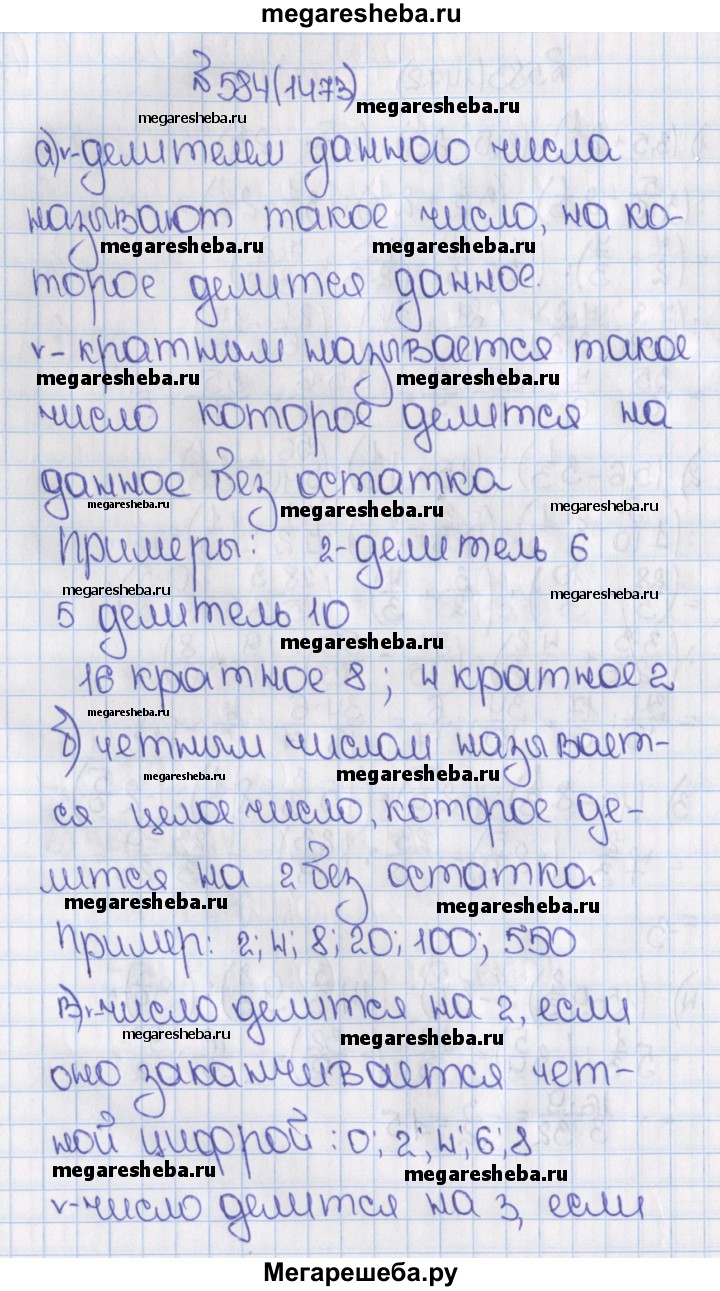 megaresheba.ru
№584(1473)
megaresheba.ru megaresheba.ru
а)v-делителем данного числа
называют такое число, на ко-
megaresheba.ru megaresheba.ru
торое делится данное.
v-кратным называется такое
megaresheba.ru megaresheba.ru
число которое делится на
данное без остатка
megaresheba.ru megaresheba.ru megaresheba.ru
Примеры: 2-делитель 6
megaresheba.ru megaresheba.ru
5 делитель 10
megaresheba.ru
16 кратное 8; 4 кратное 2
megaresheba.ru
б) четным числом называет-
megaresheba.ru megaresheba.ru
ся целое число, которое де-
лится на 2 без остатка
megaresheba.ru megaresheba.ru
Пример: 2; 4; 8; 20; 100; 550
в)v-число делится на 2, если
megaresheba.ru megaresheba.ru
оно заканчивается чет-
ной цифрой: 0; 2; 4; 6; 8
megaresheba.ru megaresheba.ru
v-число делится на 3, если
Мегарешеба.ру